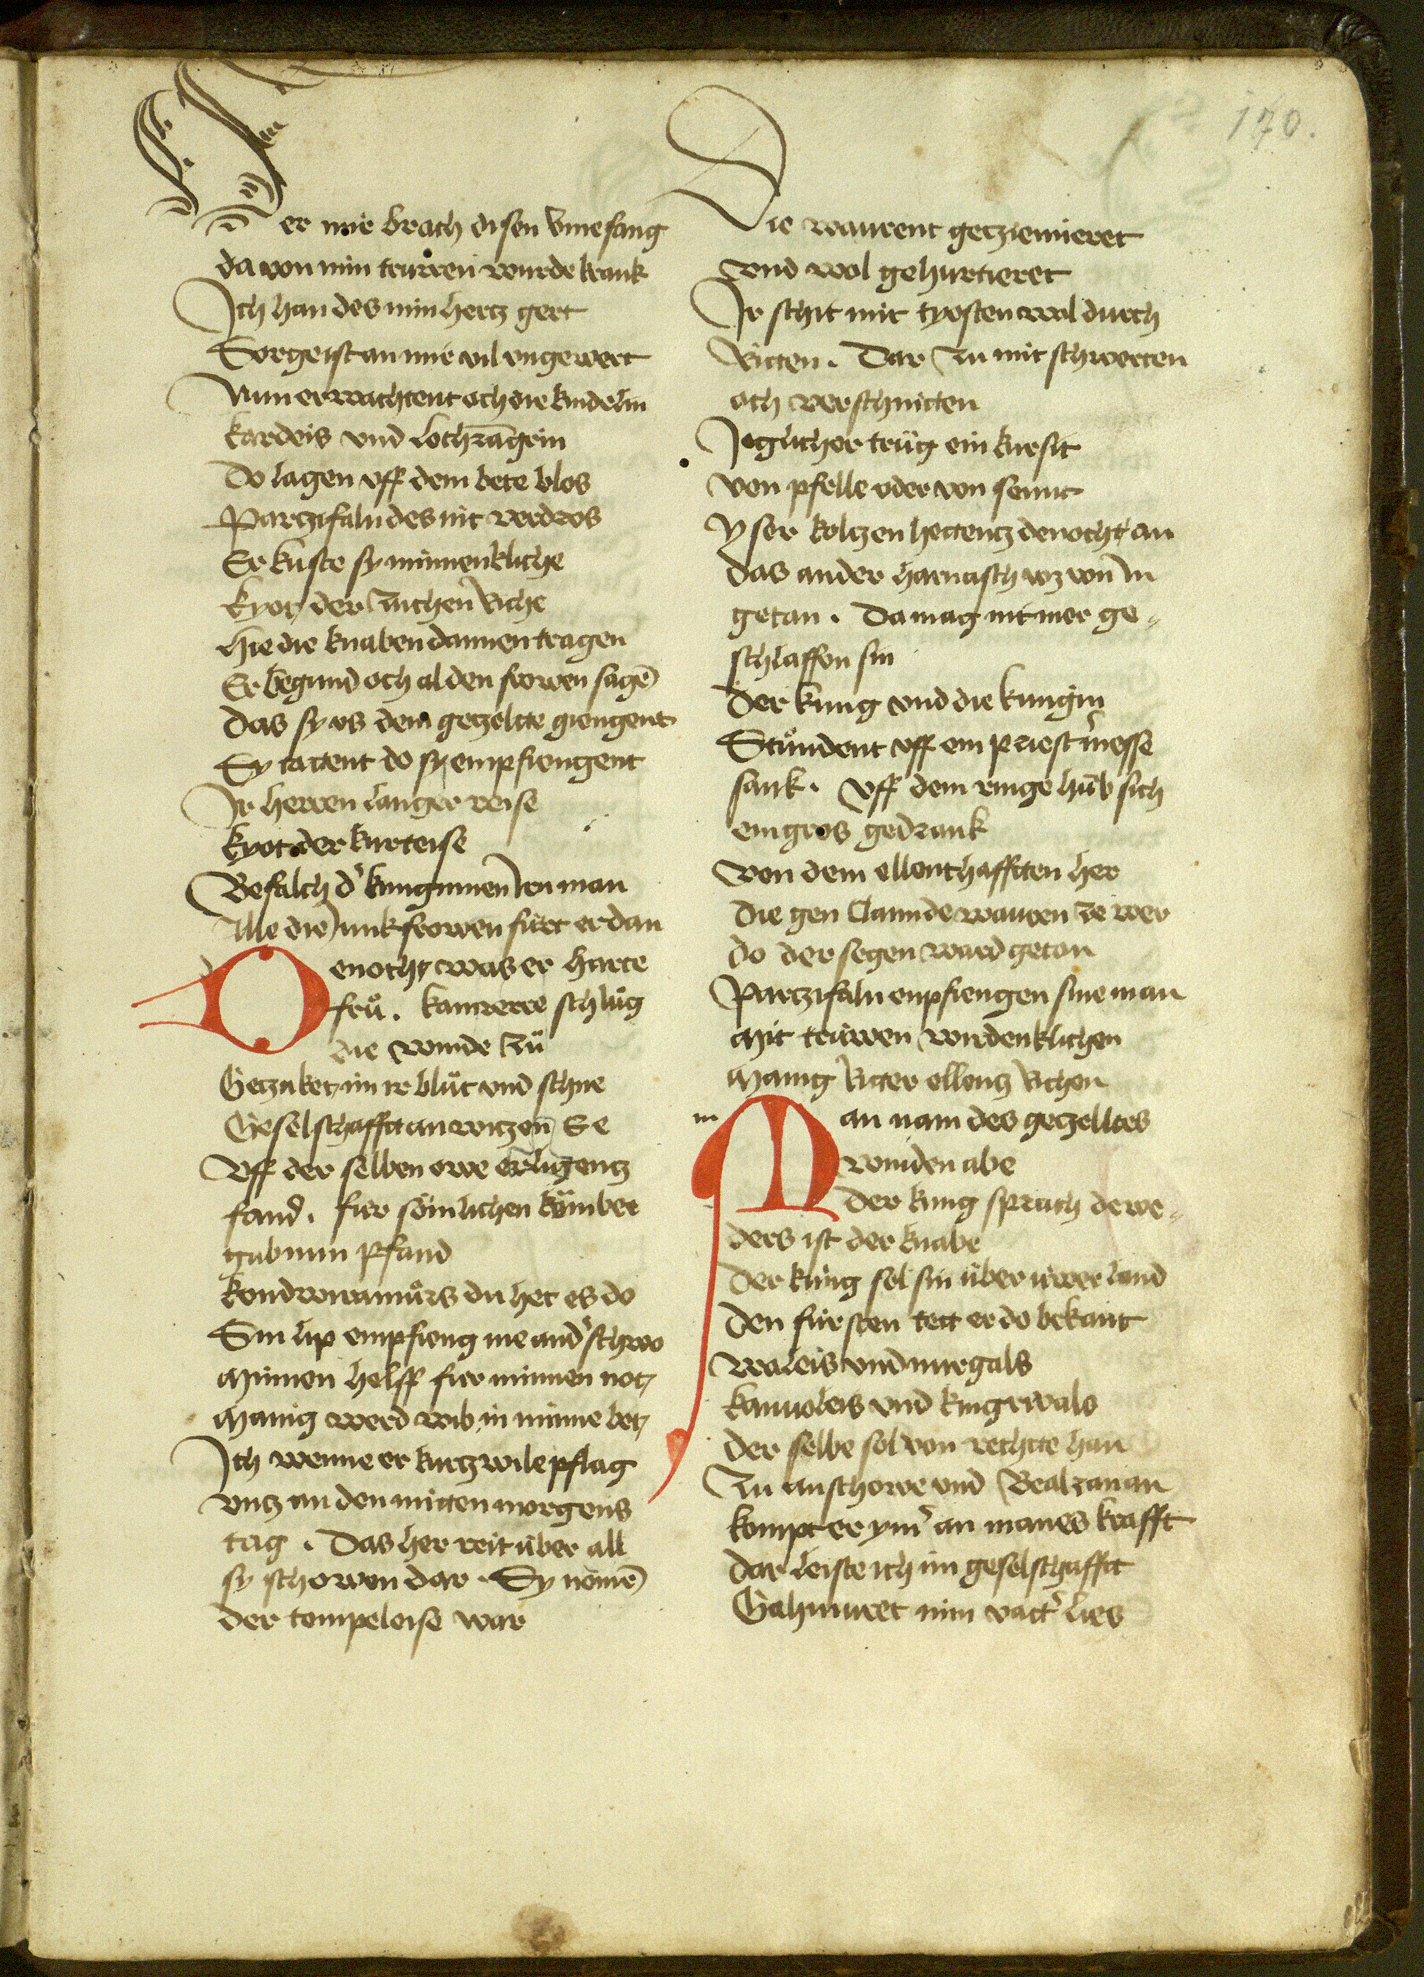 170.
Der mir brach disen vmefang
da von min truren wurde krank
Ich han des min hertz gert
Sorge ist an mir vil vngewert
Nun erwachtent och die kindelin
kardeis vnd lochragrin
Do lagen vff dem bete blos
Partzifaln des nit verdros
Er kuste sy minnenkliche
kyot der zuchen riche
hie die knaben dannen tragen
Er begund och al den frowen sagē
Das sy vs dem getzeltte giengent
Sy tattent do sy empfiengent
Ir herren langer reise
kyot der kurteise
Befalch d' kunginnen iren man
Alle die junkfrowen fürt er dan
Denocht was er harte
frů. kamrerre schlůg
die winde zů
Getzaket im ie blůt vnd schne
Geselschafft an witzen E
Vff der selben owe er ligentz
fand. fur sömlichen kumber
gab min pfand
kondwiramůrs du het es do
Sin lip empfieng nie and' schwo
Minnen helff fur minnen not
Manig werd wib in minne bet
Ich wenne er kurtzwile pflag
vntz an den mitten morgens
tag. Das her reit über all
sy schowen dar. Sy nomē
der tempeleise war
Die warrent getzimieret
vnd wol gehurtieret
Ir schilt mit tyosten wol durch
Ritten. Dar zu mit schwerten
och verschnitten
Jeglicher trůg ein kursit
von pfelle oder von semit
Yser koltzen hettentz denocht an
Das ander harnasch wz von in
getan. Da mag nit mer ge„
schlaffen sin
Der kung vnd die kungin
Stůndent vff ein priest' messe
sank. Vff dem ringe hůb sich
ein gros gedrank
Von dem ellenthafften her
Die gen Clamide warren ze wer
do der segen ward getan
Partzifaln enpfiengen sine man
Mit trüwen wirdenklichen
Manig ritter ellentz richen
m
Man nam des getzelltes
winden abe
Der kung sprach dewe„
ders ist der knabe
Der kúng sol sin über üwer land
Den fürsten tett er do bekant
Waleis vnd nurgals
kanuoleis vnd kingrwals
Der selbe sol von rechte han
Zu anschowe vnd Bealzanan
kompt er ym' an manes krafft
Dar leiste ich im geselschafft
Gahmuret min vatt' lies